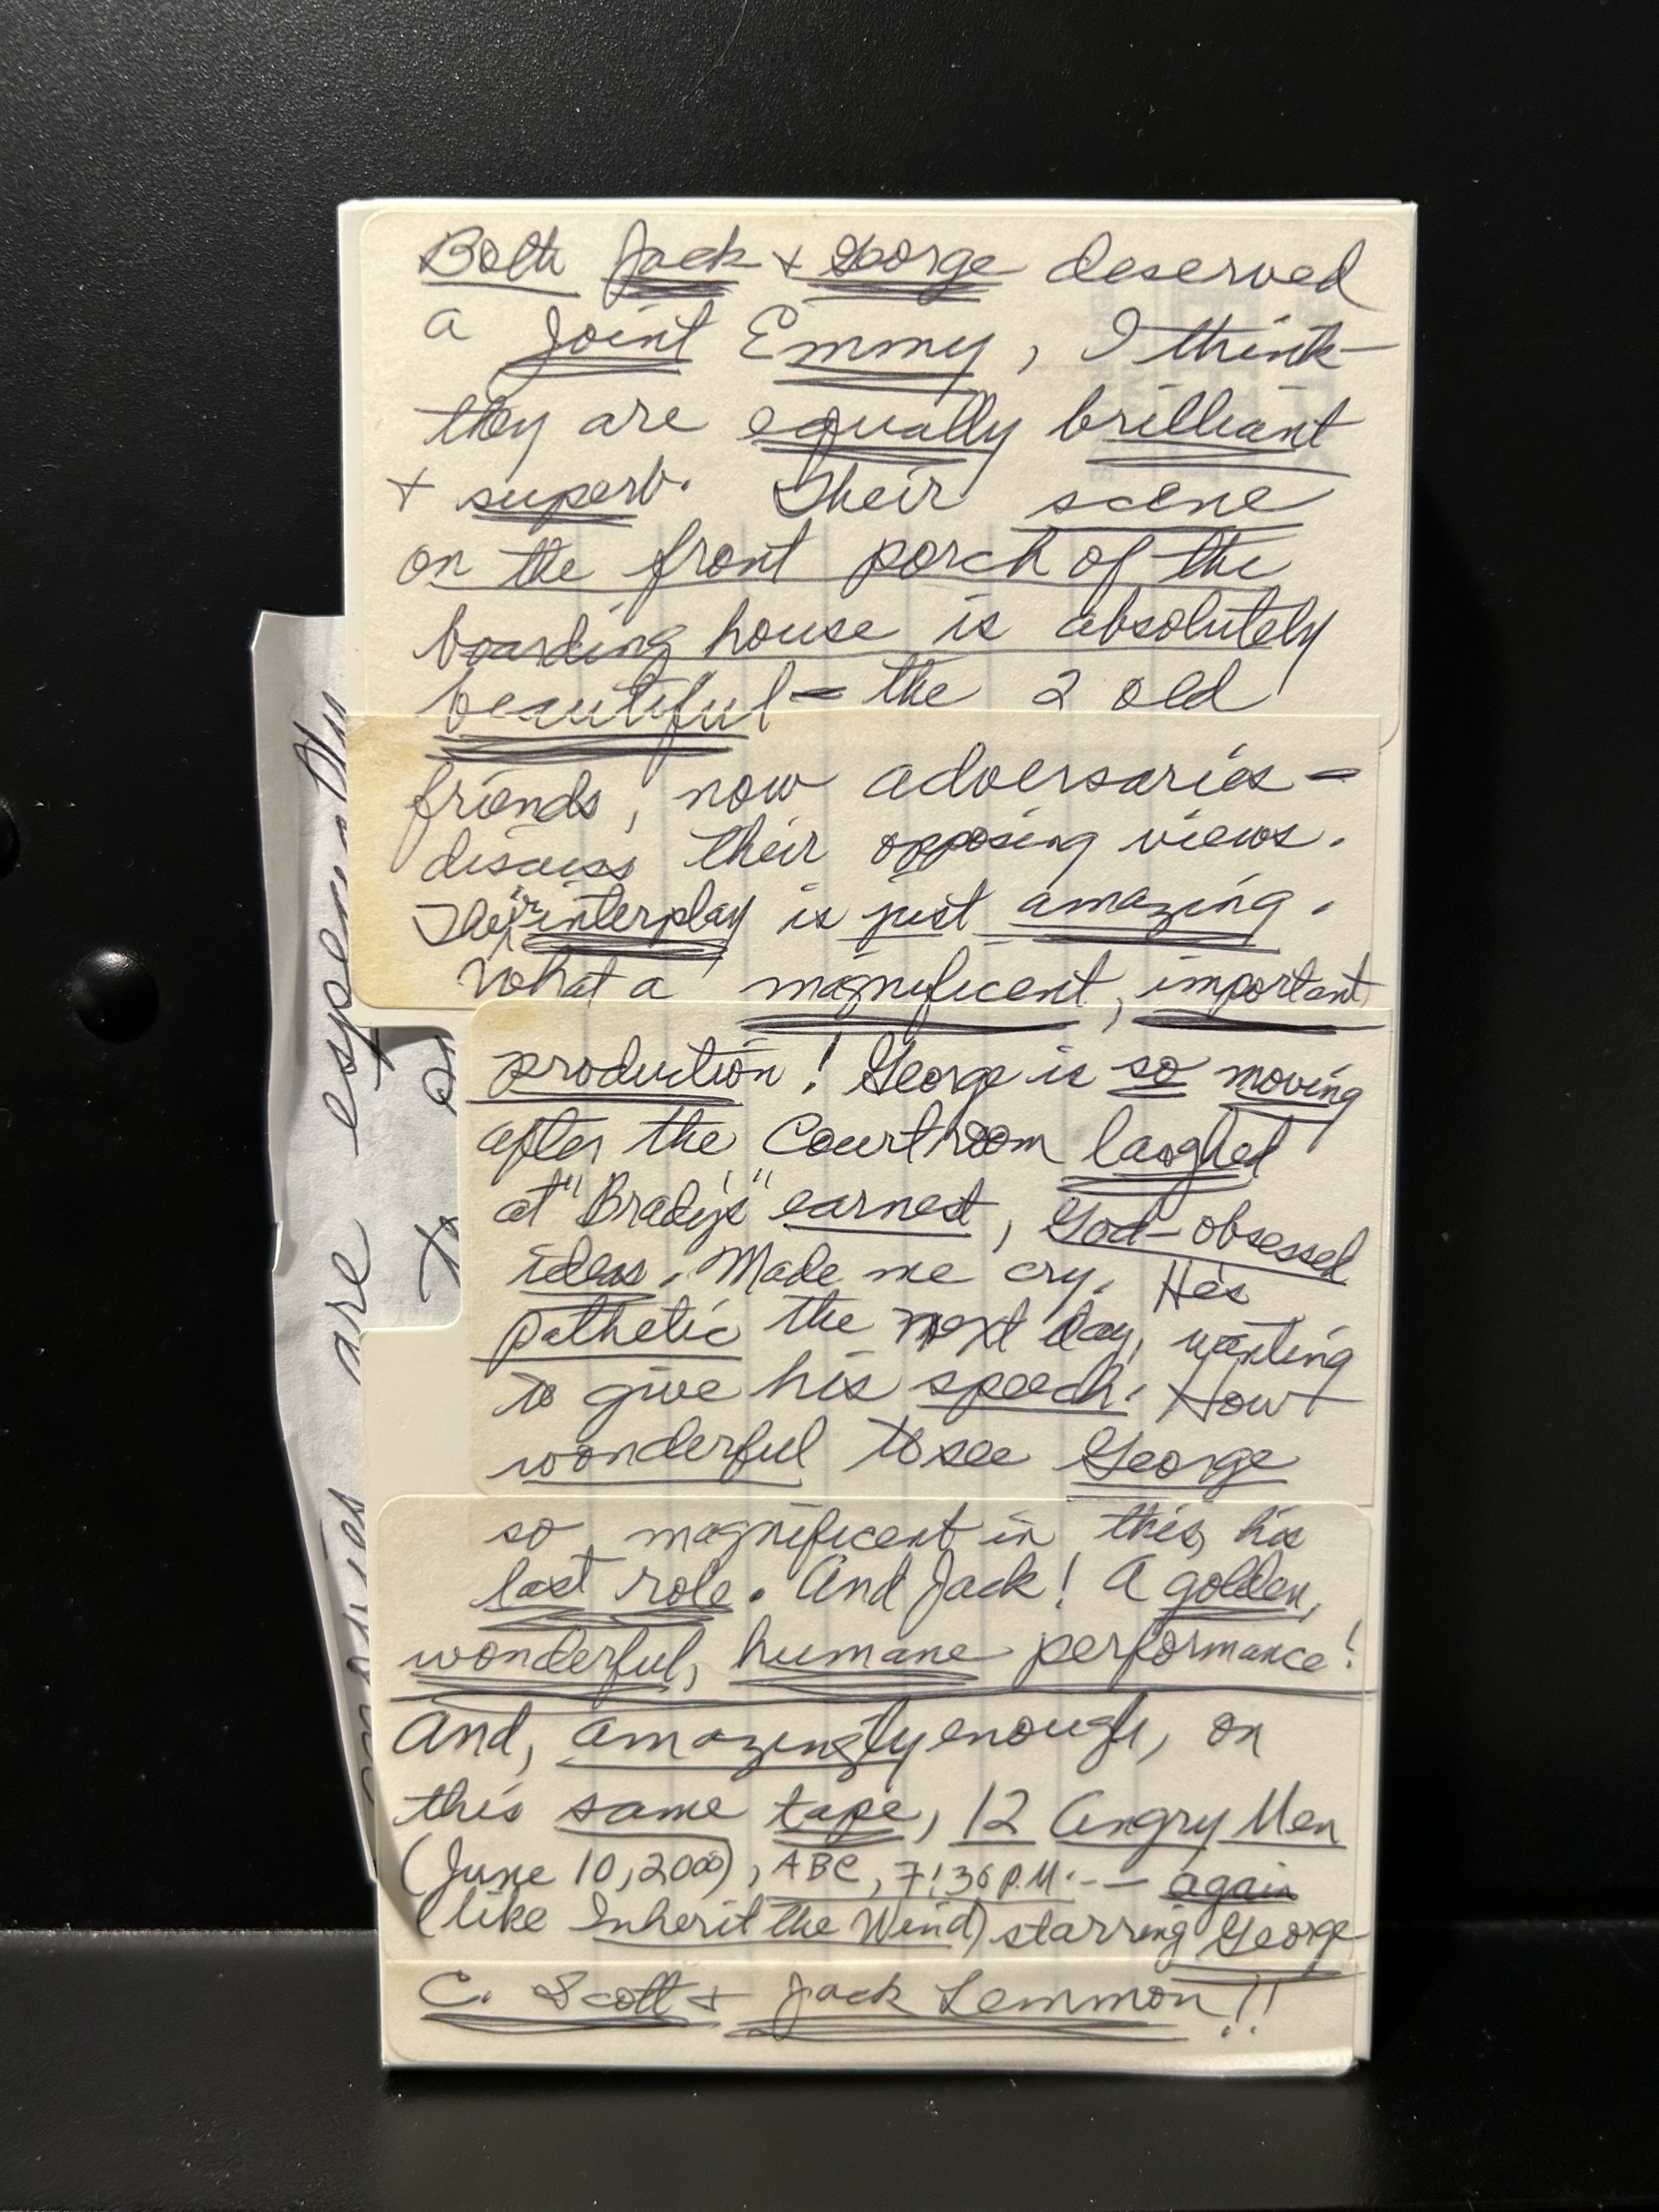 Both Jack + George deserved
a Joint Emmy, I think
they are equally brilliant
+ superb. Their scene
on the front porch of the
boarding house is absolutely
beautiful - the 2 old
friends, now adversaries -
discuss their opposing views.
Their interplay is just amazing.
What a magnificent, important
production! George is so moving
after the Courtroom laughed
at "Brady's" earnest, God-obsessed
ideas. Made me cry. He's
pathetic the next day, wanting
to give his speech. How
wonderful to see George
so magnificent in this, his
last role. And Jack! A golden,
wonderful, humane performance!
And, amazingly enough, on
this same tape, 12 Angry Men
(June 10, 2000), ABC, 7:36 P.M. -- again
(like Inherit the Wind) starring George
C. Scott + Jack Lemmon!!
are